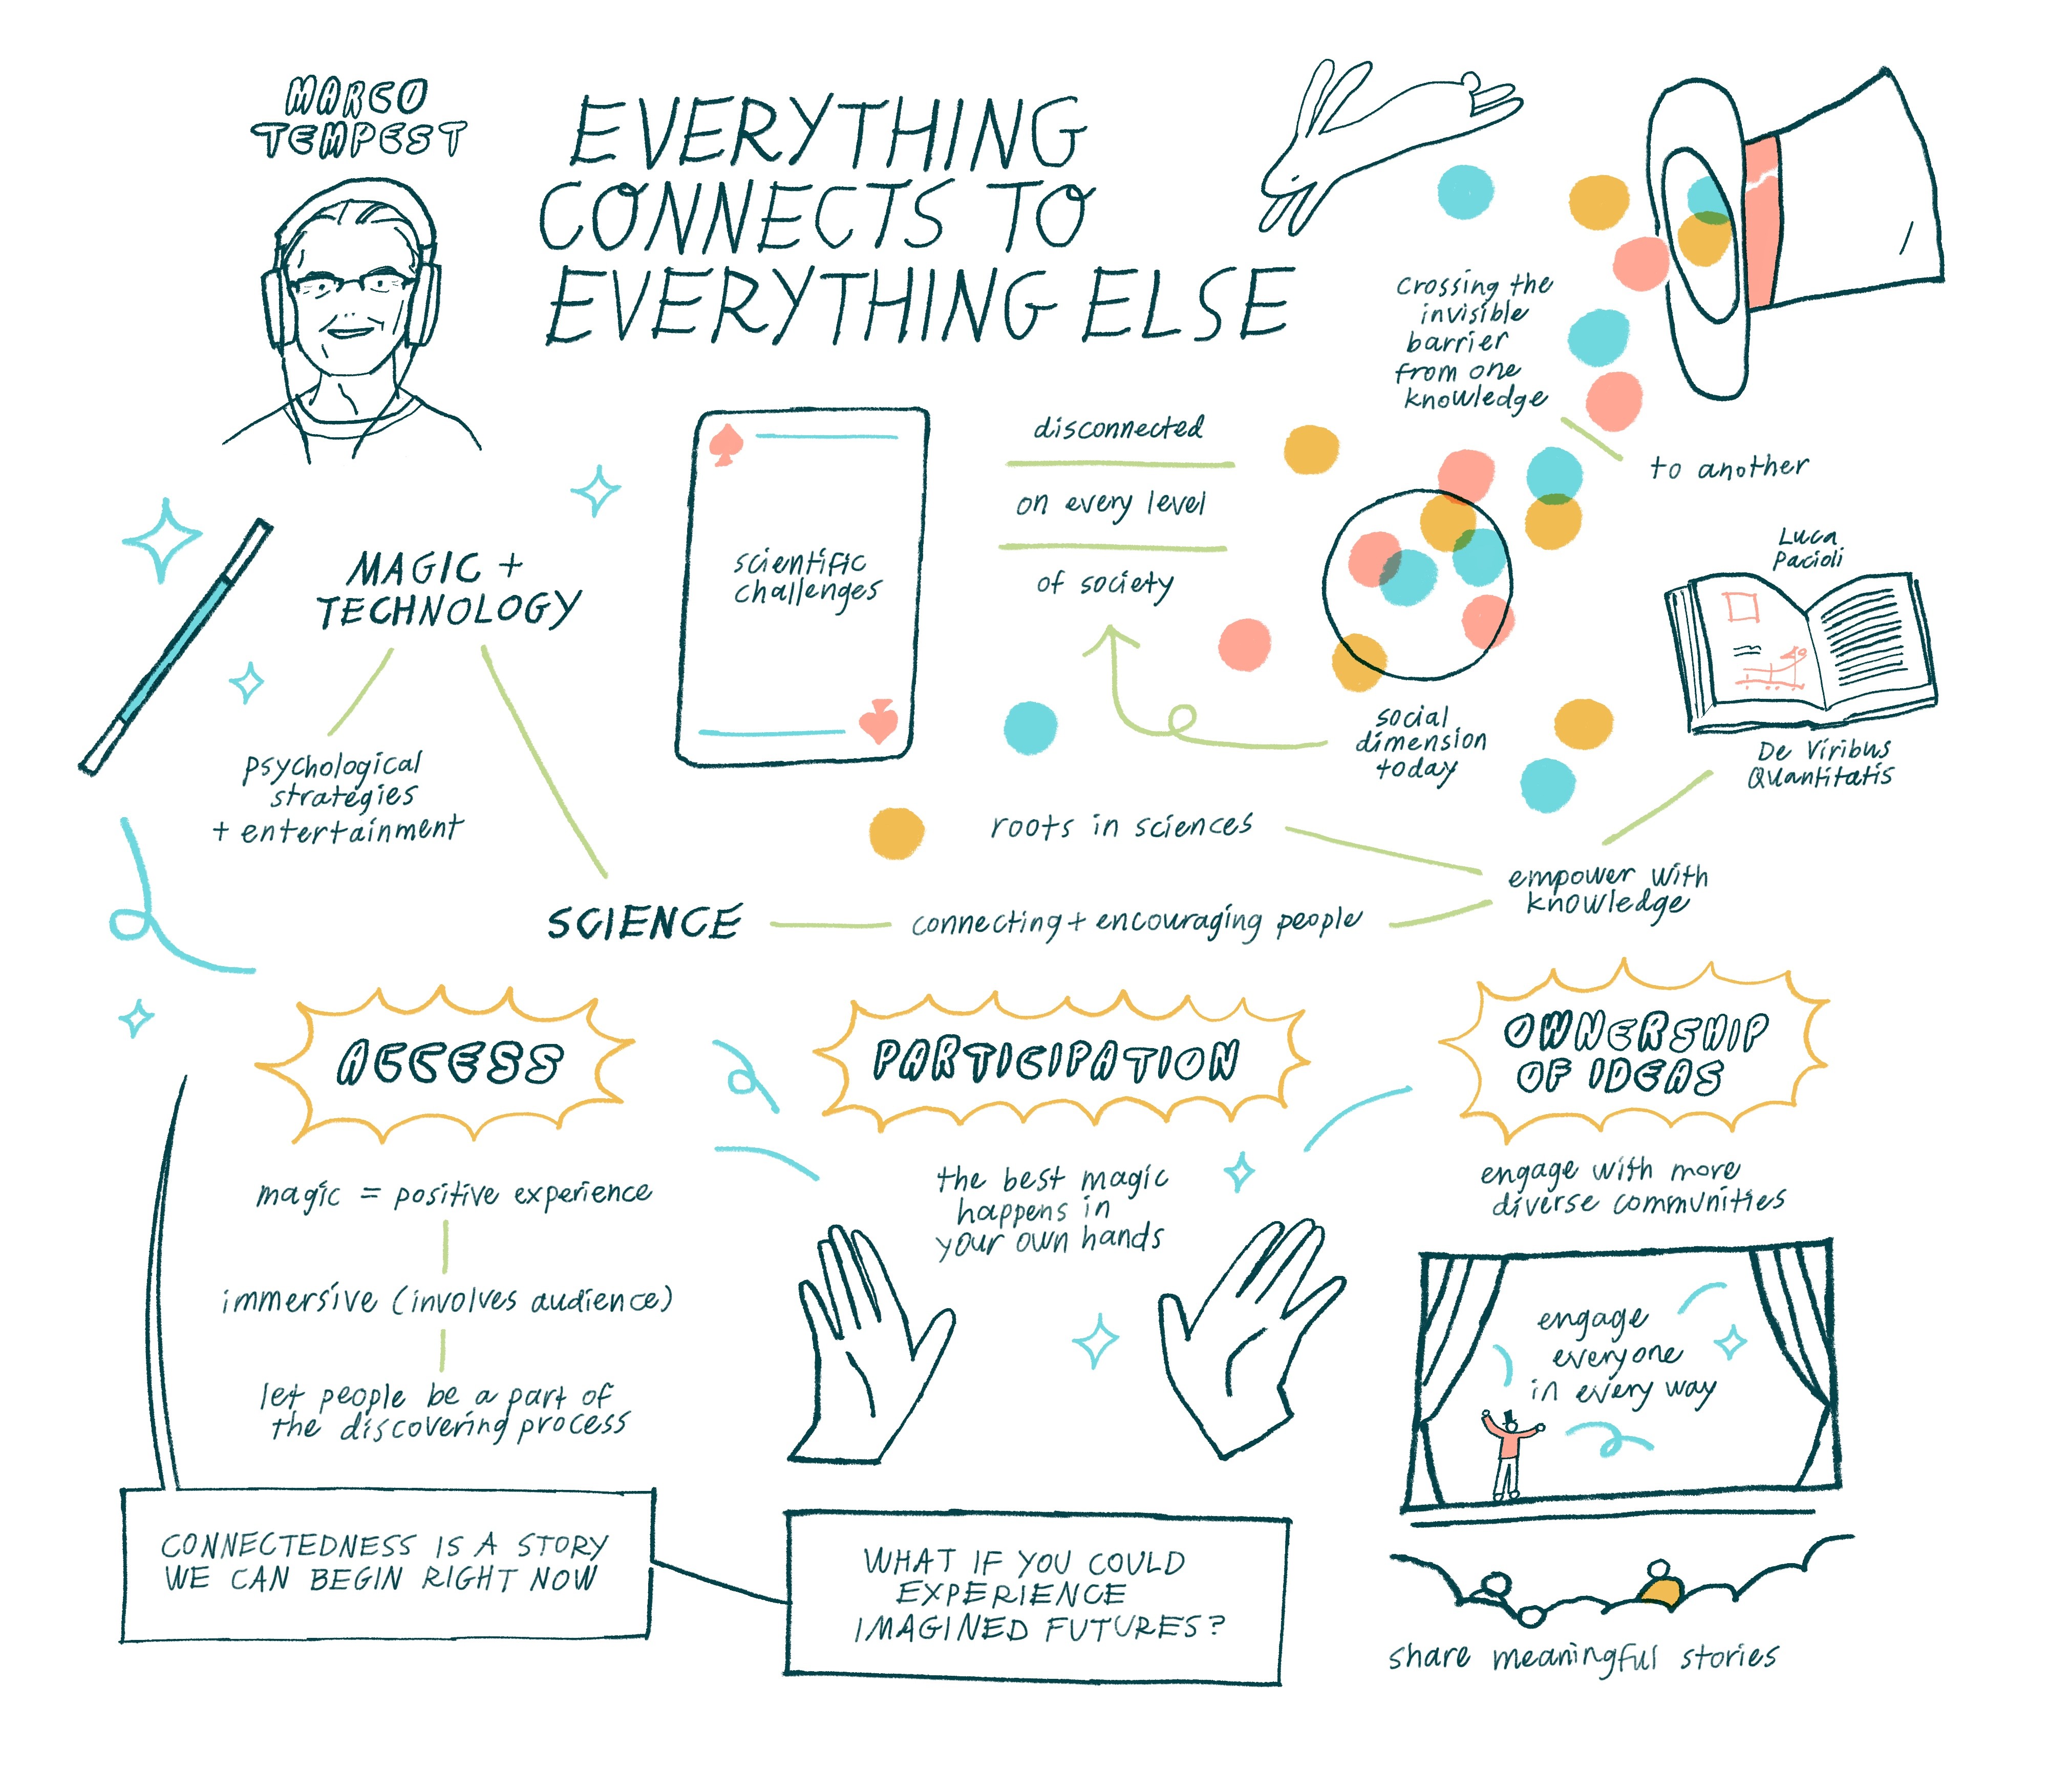 MARCO
TEMPEST
EVERYTHING
CONNECTS TO
EVERYTHING ELSE
crossing the
invisible
barrier
from one
knowledge
to another
disconnected
on every level
of society
scientific
challenges
MAGIC +
TECHNOLOGY
Luca
Pacioli
De Viribus
Quantitatis
social
dimension
today
psychological
strategies
+ entertainment
roots in sciences
empower with
knowledge
SCIENCE
connecting + encouraging people
ACCESS
magic = positive experience
immersive (involves audience)
let people be a part of
the discovering process
PARTICIPATION
the best magic
happens in
your own hands
OWNERSHIP
OF IDEAS
engage with more
diverse communities
engage
everyone
in every way
share meaningful stories
CONNECTEDNESS IS A STORY
WE CAN BEGIN RIGHT NOW
WHAT IF YOU COULD
EXPERIENCE
IMAGINED FUTURES?